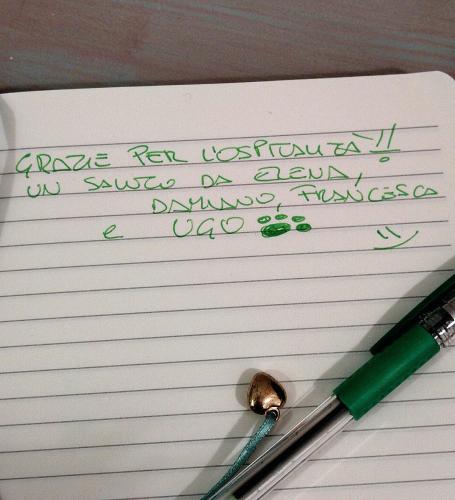 GRAZIE PER L'OSPITALITA'!!
UN SALUTO DA ELENA,
DAMIANO, FRANCESCA
e UGO